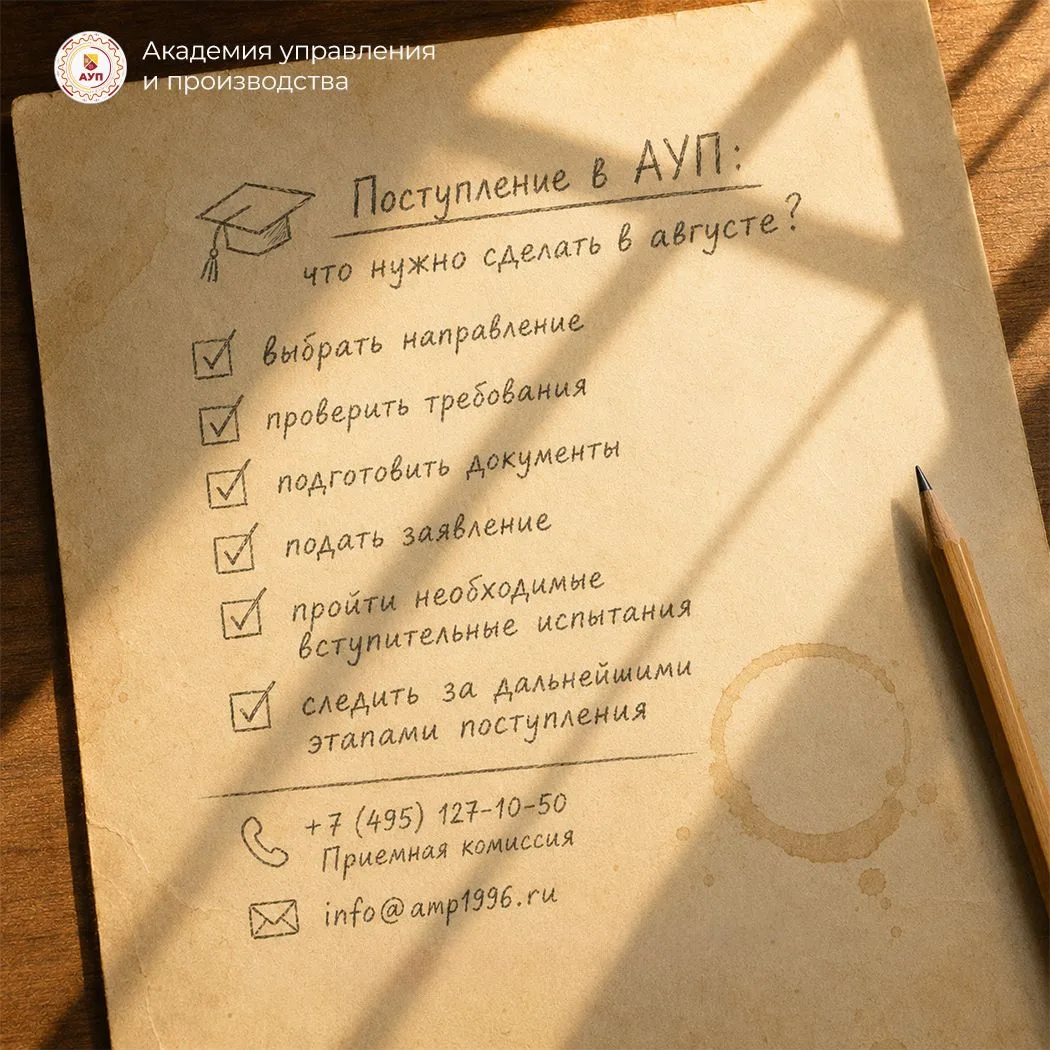 АУП
Академия управления
и производства
Поступление в АУП:
что нужно сделать в августе?
выбрать направление
проверить требования
подготовить документы
подать заявление
пройти необходимые
вступительные испытания
следить за дальнейшими
этапами поступления
+7 (495) 127-10-50
Приемная комиссия
info@amp1996.ru